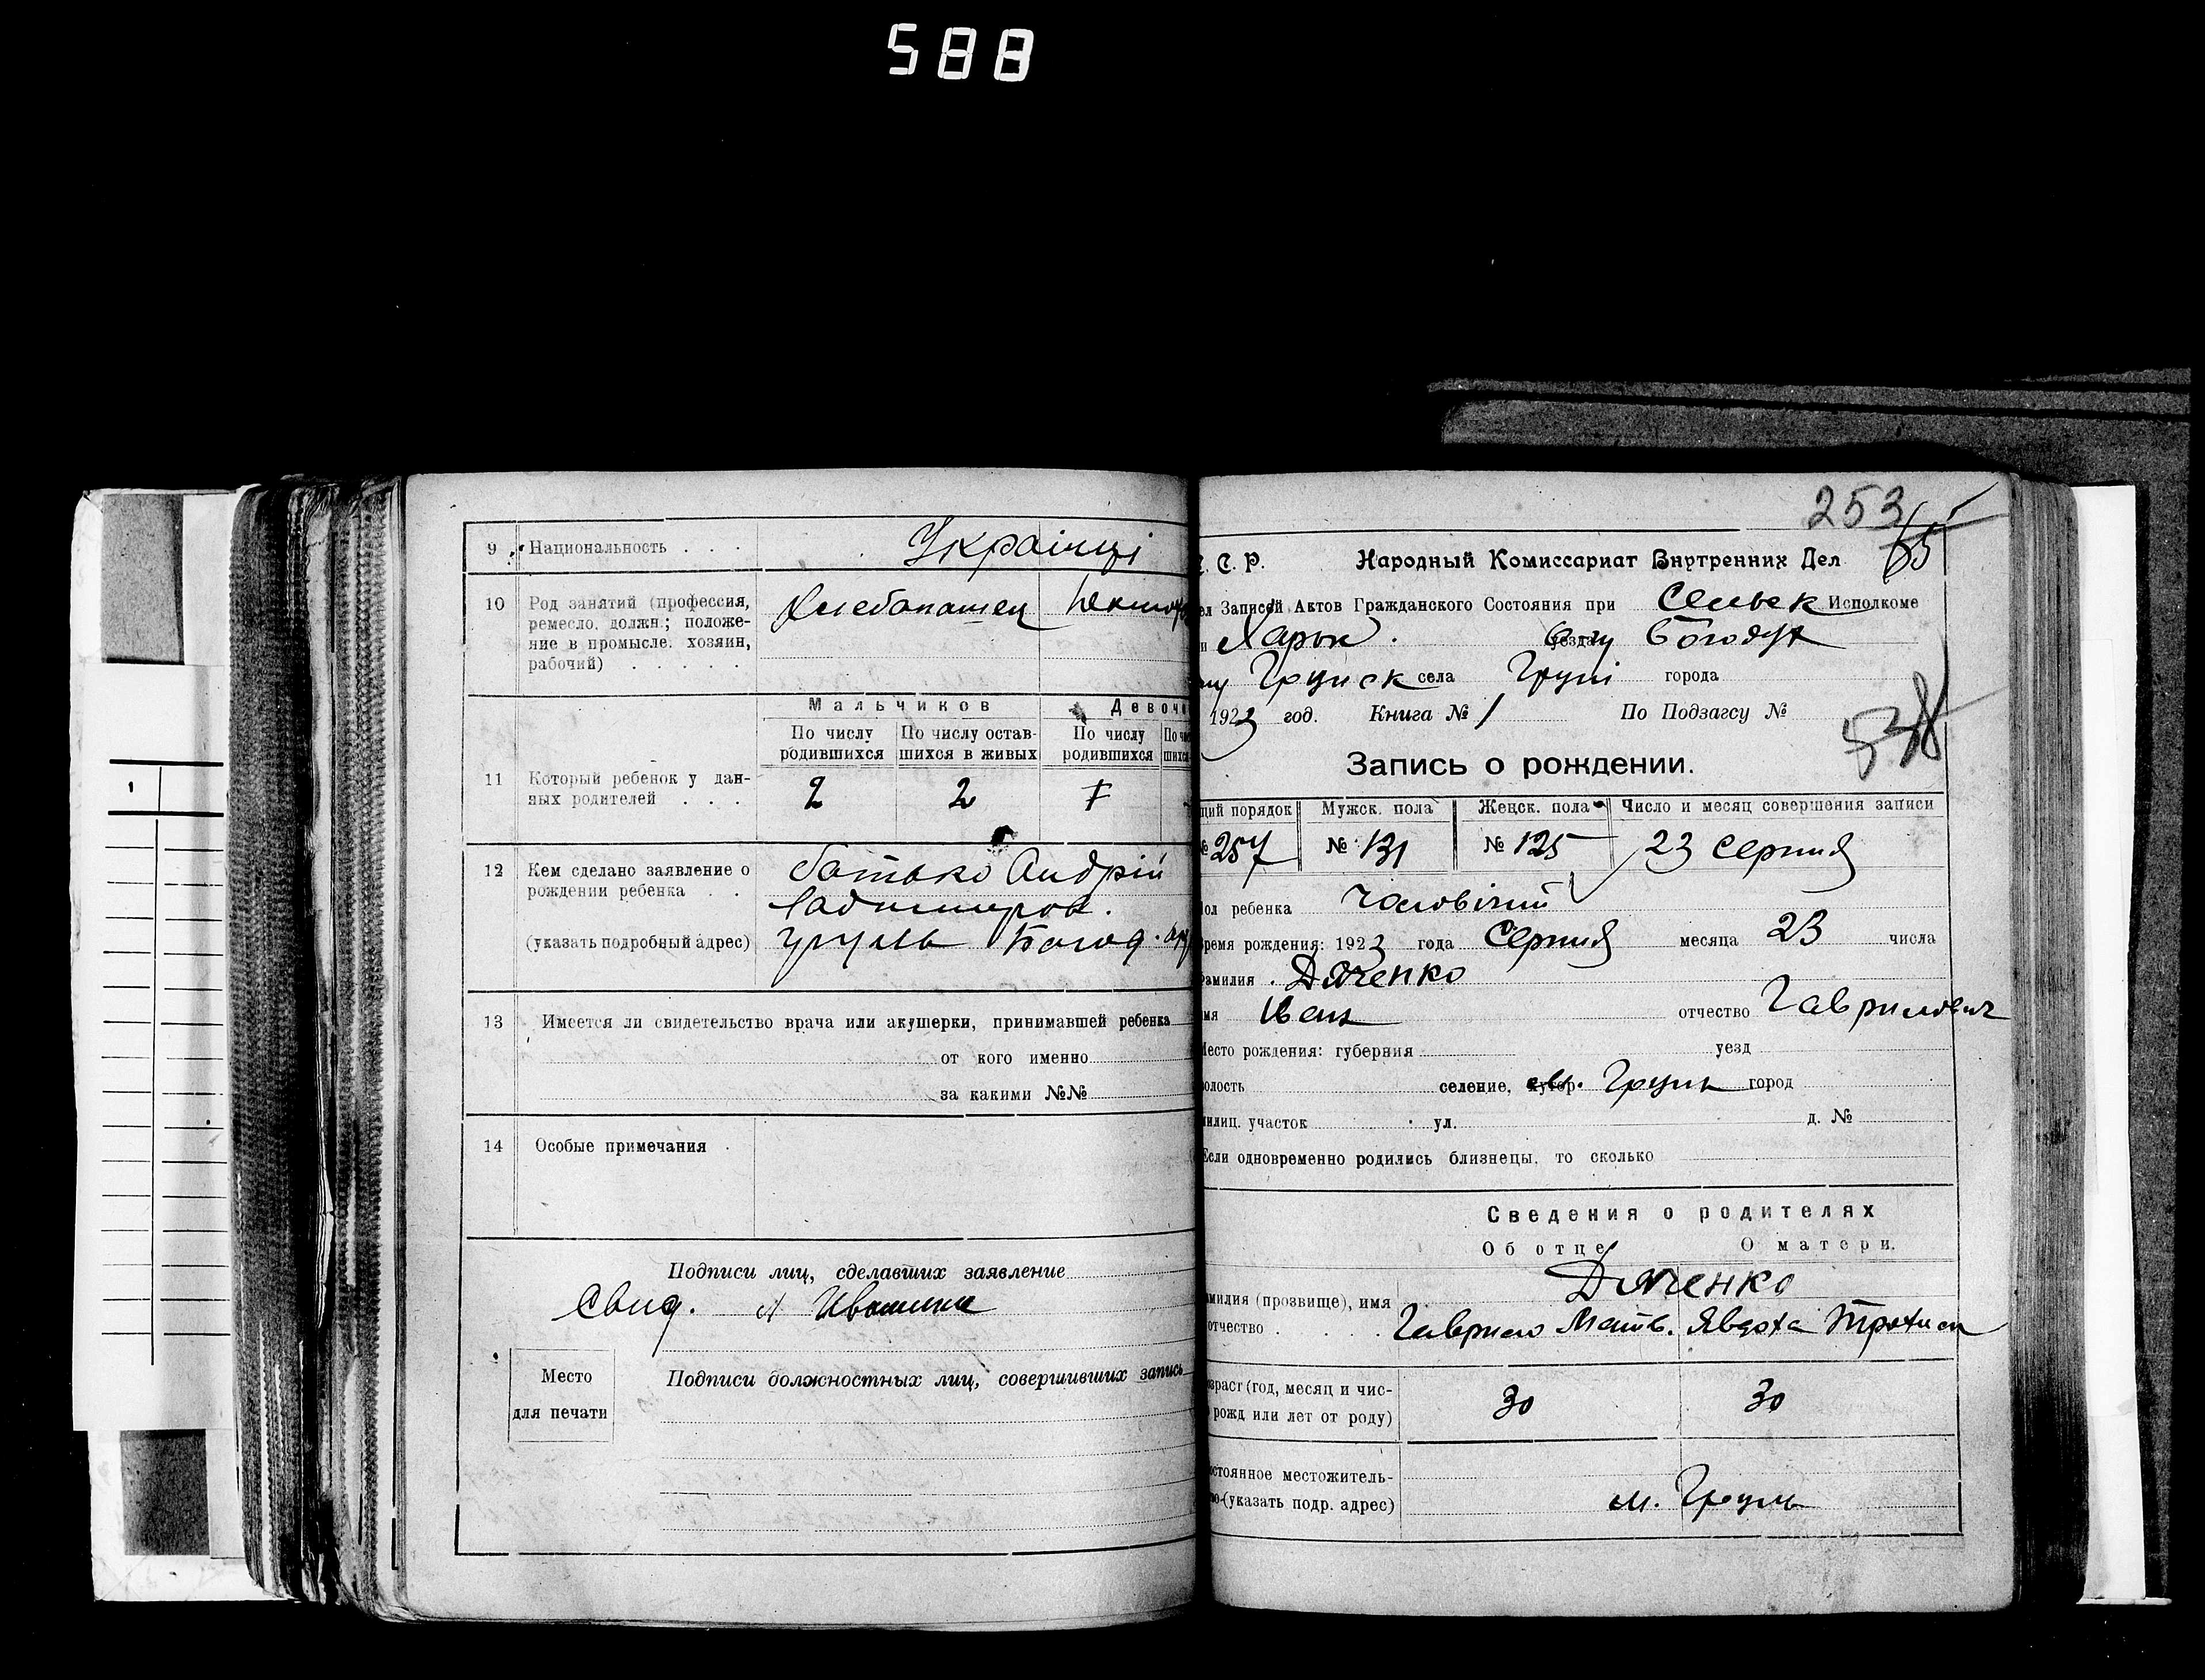 588
9 Национальность . . . Українці
10 Род занятий (профессия,
ремесло, должн.; положе-
ние в промысле: хозяин,
рабочий) . . . . .
Хлебопашец
Мальчиков Девоче
По числу родившихся По числу остав-шихся в живых По числу родившихся
11 Который ребенок у дан-
ных родителей . . .
2 2
12 Кем сделано заявление о
рождении ребенка . .
(указать подробный адрес)
батько Андрій
13 Имеется ли свидетельство врача или акушерки, принимавшей ребенка
от кого именно
за какими №№
14 Особые примечания
Подписи лиц, сделавших заявление
Свид. А Ивашина
Место
для печати
Подписи должностных лиц, совершивших запись
253
65
С. Р. Народный Комиссариат Внутренних Дел
Записей Актов Гражданского Состояния при Сельвек Исполкоме
Харьк. уезда Богодух
Грунск села Груні города
1923 год. Книга № 1 По Подзагсу №
538
Запись о рождении.
щий порядок Мужск. пола Женск. пола Число и месяц совершения записи
№ 257 № 131 № 125 23 серпня
ол ребенка Чоловічий
ремя рождения: 1923 года Серпня месяца 23 числа
амилия . Дяченко
мя Иван отчество Гаврилович
Место рождения: губерния уезд
олость селение, хутор м. Грунь город
илиц. участок ул. д. №
Если одновременно родились близнецы, то сколько
Сведения о родителях
Об отце О матери.
Дяченко
амилия (прозвище), имя
отчество . . . . Гаврило Матв. Явдоха Трохим
озраст (год, месяц и чис-
рожд или лет от роду)
30 30
остоянное местожитель-
во (указать подр. адрес)
м. Грунь